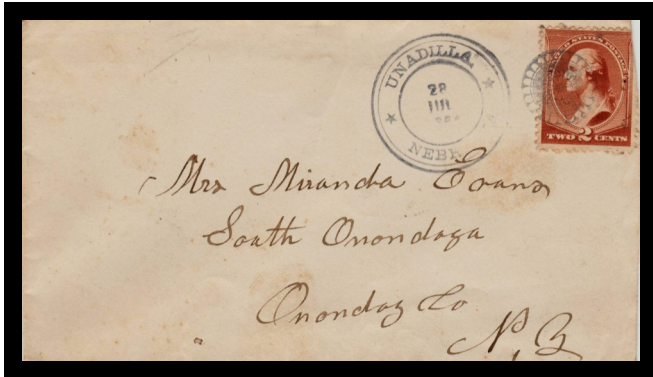 UNADILLA,
28
NEBR
UNITED STATES POSTAGE
TWO 2 CENTS
Mrs Miranda Evans
South Onondaga
Onondag Co
N, Y